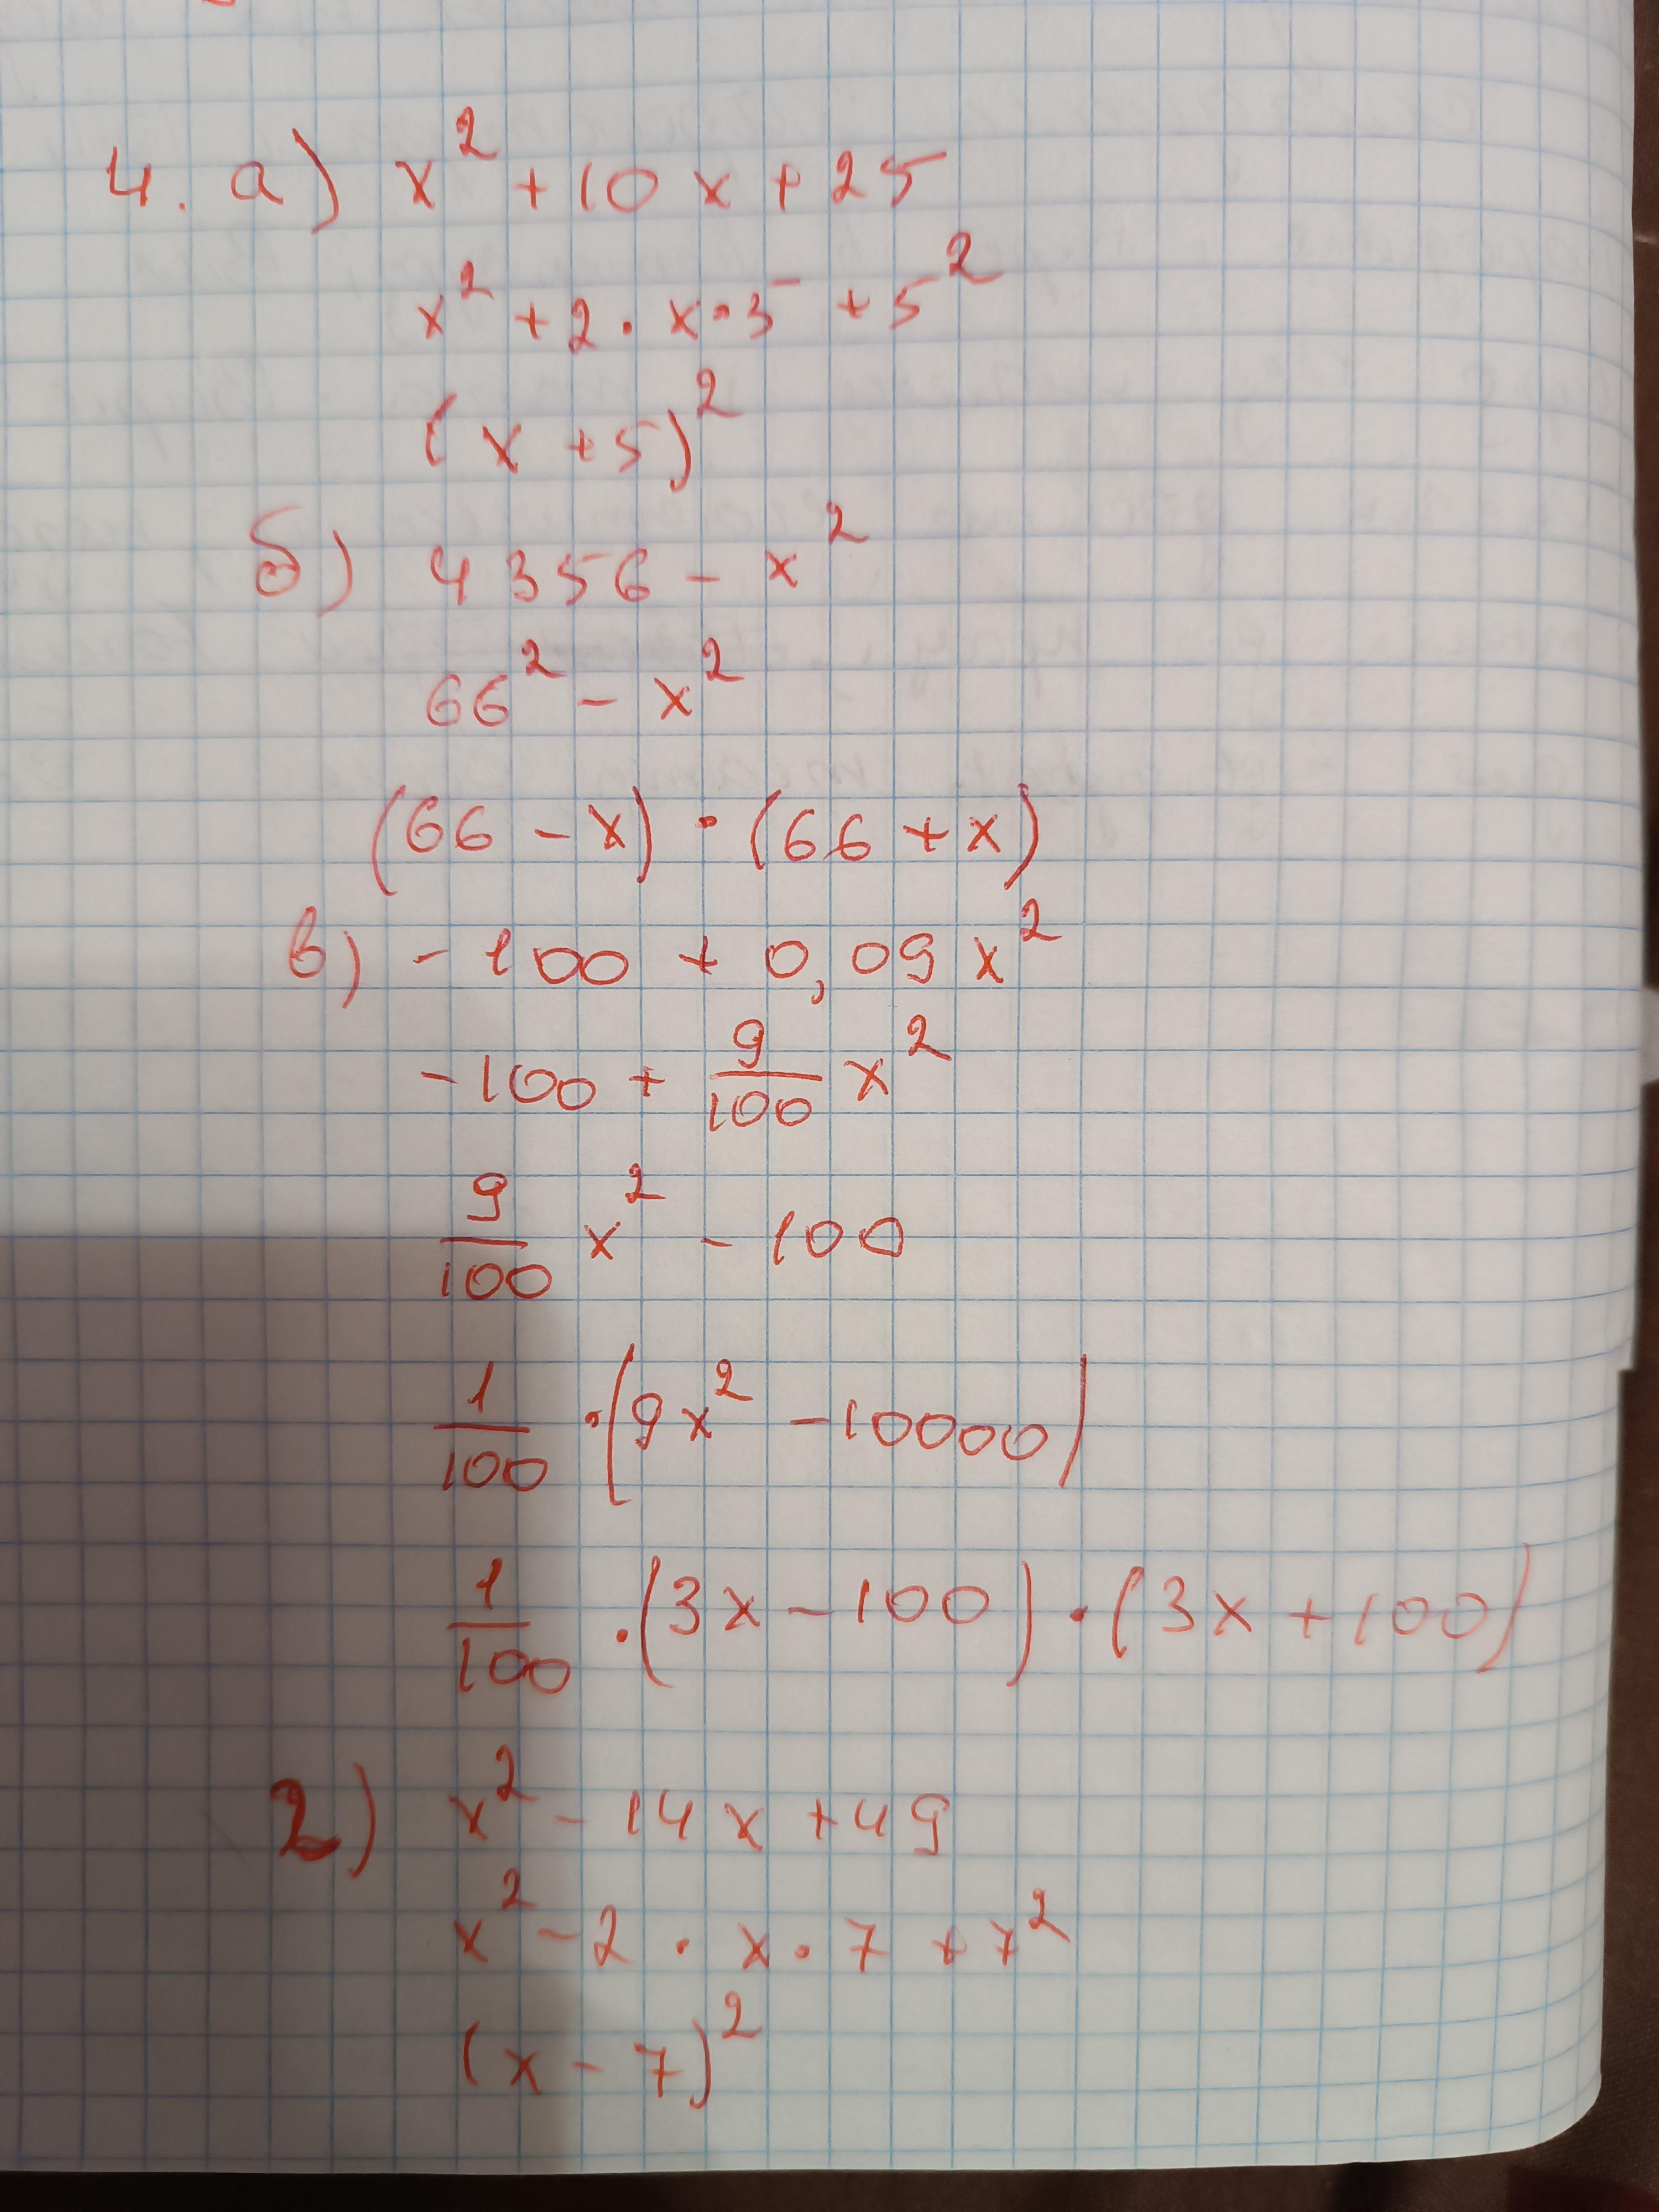 4. а) x² + 10x + 25
x² + 2 · x · 5 + 5²
(x + 5)²
б) 4356 - x²
66² - x²
(66 - x) · (66 + x)
в) - 100 + 0,09x²
-100 + 9/100 x²
9/100 x² - 100
1/100 · (9x² - 10000)
1/100 · (3x - 100) · (3x + 100)
г) x² - 14x + 49
x² - 2 · x · 7 + 7²
(x - 7)²